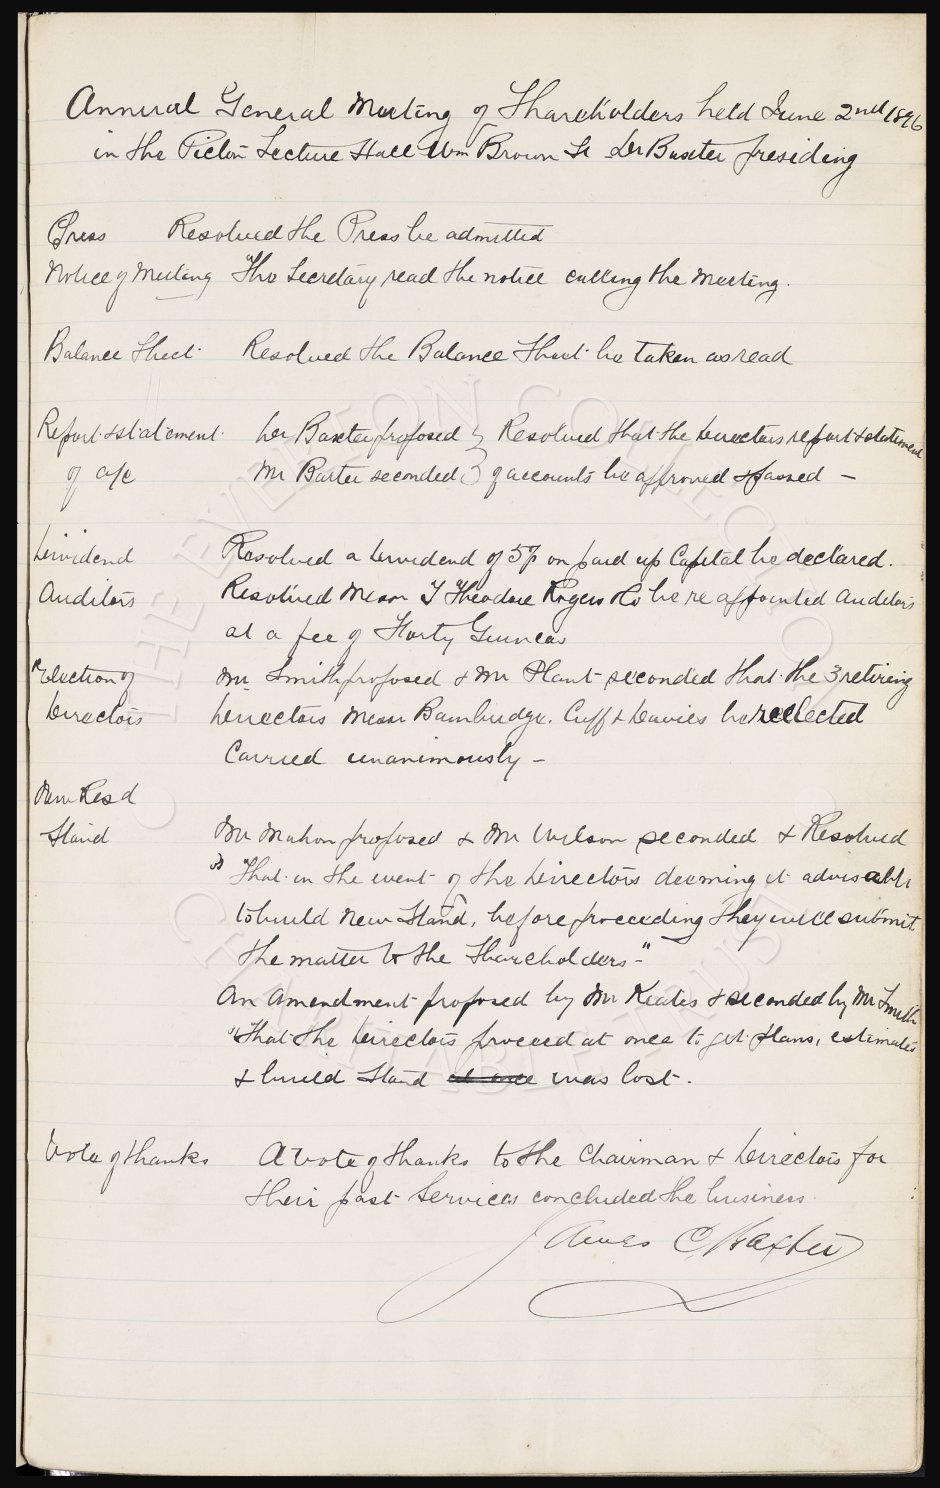 Annual General Meeting of Shareholders held June 2nd 1896
in the Picton Lecture Hall Wm Brown St Dr Baxter presiding
Press Resolved the Press be admitted
Notice of Meeting The Secretary read the notice calling the Meeting.
Balance Sheet Resolved the Balance Sheet be taken as read
Report & statement Dr Baxter proposed } Resolved that the Directors report & statement
of a/c Mr Barter seconded } of accounts be approved & passed –
Dividend Resolved a Dividend of 5% on paid up Capital be declared.
Auditors Resolved Messrs T Theodore Rogers & Co be re appointed Auditors
at a fee of Forty Guineas
Election of Mr Smith proposed & Mr Plant seconded that the 3 retiring
Directors Directors Messrs Bainbridge, Cuff & Davies be reelected
Carried unanimously –
New Res'd
Stand Mr Mahon proposed & Mr Wilson seconded & Resolved
"That in the event of the Directors deeming it advisable
to build new Stand, before proceeding they will submit
the matter to the Shareholders –"
An Amendment proposed by Mr Keates & seconded by Mr Smith
"That the Directors proceed at once to get plans, estimates
& build Stand at once was lost.
Vote of thanks A vote of thanks to the Chairman & Directors for
their past services concluded the business.
James C Baxter
THE EVERTON COLLECTION
CHARITABLE TRUST